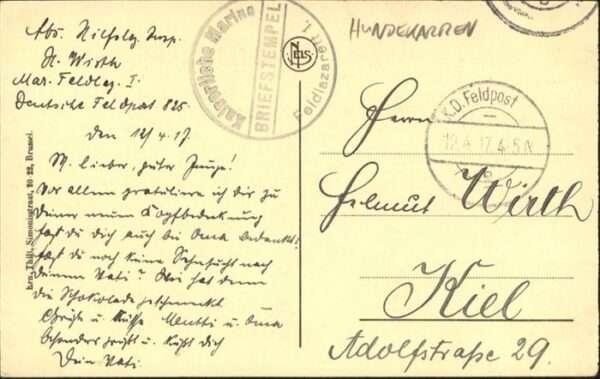 HUNDEKARREN
Abs. Hilfslaz. Insp.
H. Wirth
Mar. Feldlaz. I.
Deutsche Feldpost 825
Kaiserliche Marine
BRIEFSTEMPEL
Feldlazarett I.
NELS
K.D. Feldpost
12.4.17. 4-5 N
den 12/4.17
M. lieber, guter Junge!
Vor allem gratuliere ich dir zu
deiner neuen Kopfbedeckung
hast du dich auch bei Oma bedankt?
hast du noch keine Sehnsucht nach
deinem Vati? Wie hat denn
die Schokolade geschmeckt
Grüße u. Küsse Mutti u. Oma
besonders grüßt u. küßt dich
Dein Vati.
Herrn
Helmut Wirth
Kiel
Adolfstraße 29.
Ern. Thill, Bruxel.